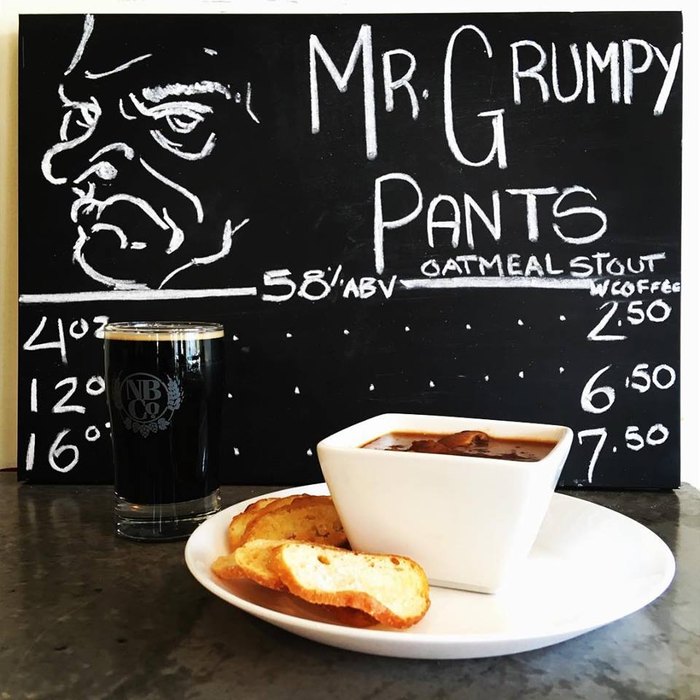 MR. GRUMPY
PANTS
OATMEAL STOUT
5.8% ABV
W COFFEE
4oz 2.50
12oz 6.50
16oz 7.50
NB
Co